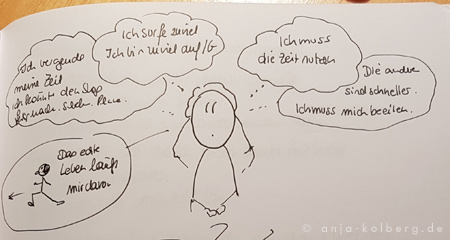 Ich vergeude
meine Zeit
ich könnte den Shop
Ich surfe zuviel
Ich bin zuviel auf IG
Ich muss
die Zeit nutzen
Die anderen
sind schneller.
Ich muss mich beeilen.
Das echte
Leben läuft
mir davon
© anja-kolberg.de